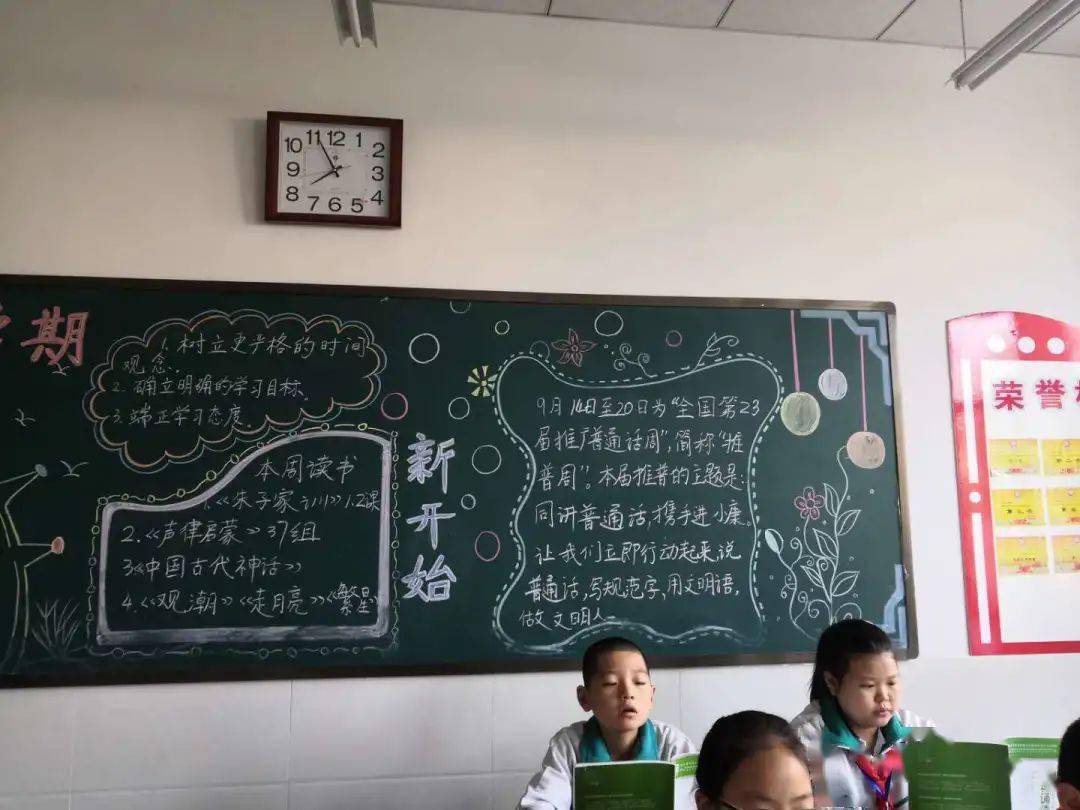 11 12 1
10 2
9 3
8 4
7 6 5
学期
1. 树立更严格的时间
观念.
2. 确立明确的学习目标.
3. 端正学习态度.
本周读书
1.《朱子家训》1.2课
2.《声律启蒙》37组
3《中国古代神话》
4.《观潮》《走月亮》《繁星》
新开始
9月14日至20日为“全国第23
届推广普通话周”,简称“推
普周”. 本届推普的主题是:
同讲普通话,携手进小康.
让我们立即行动起来,说
普通话,写规范字,用文明语,
做文明人
荣誉